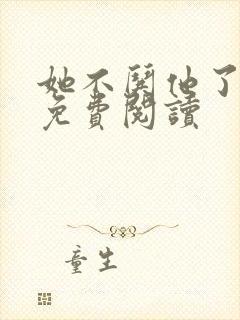 她不舔他了
免費閱讀
童生